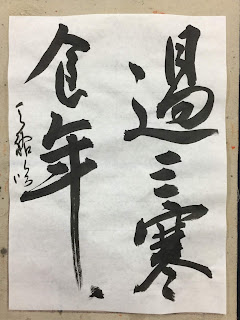 過三寒
食年